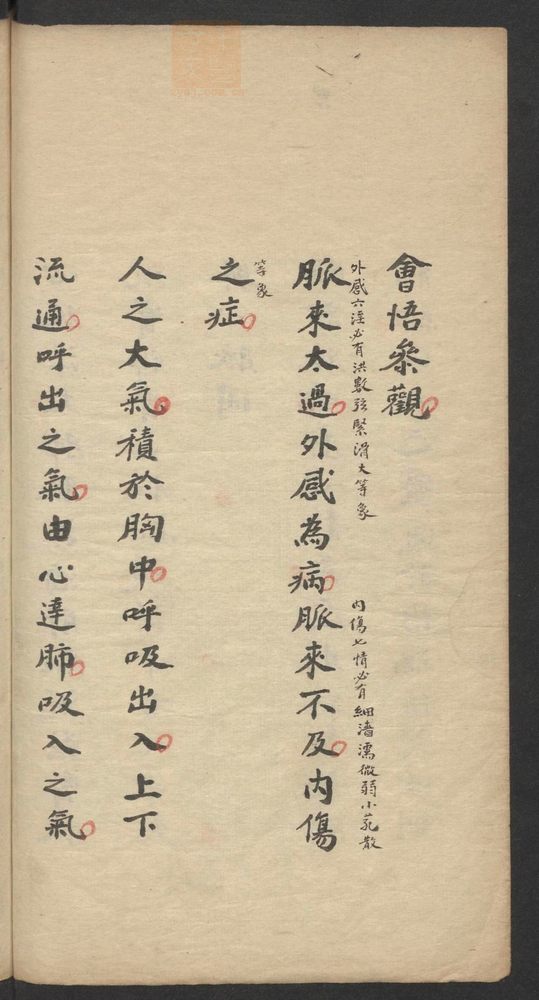 會悟參觀
外感六淫必有洪數弦緊滑大等象
內傷七情必有細濇濡微弱小芤散
脈來太過外感為病脈來不及內傷
等象
之症
人之大氣積於胸中呼吸出入上下
流通呼出之氣由心達肺吸入之氣